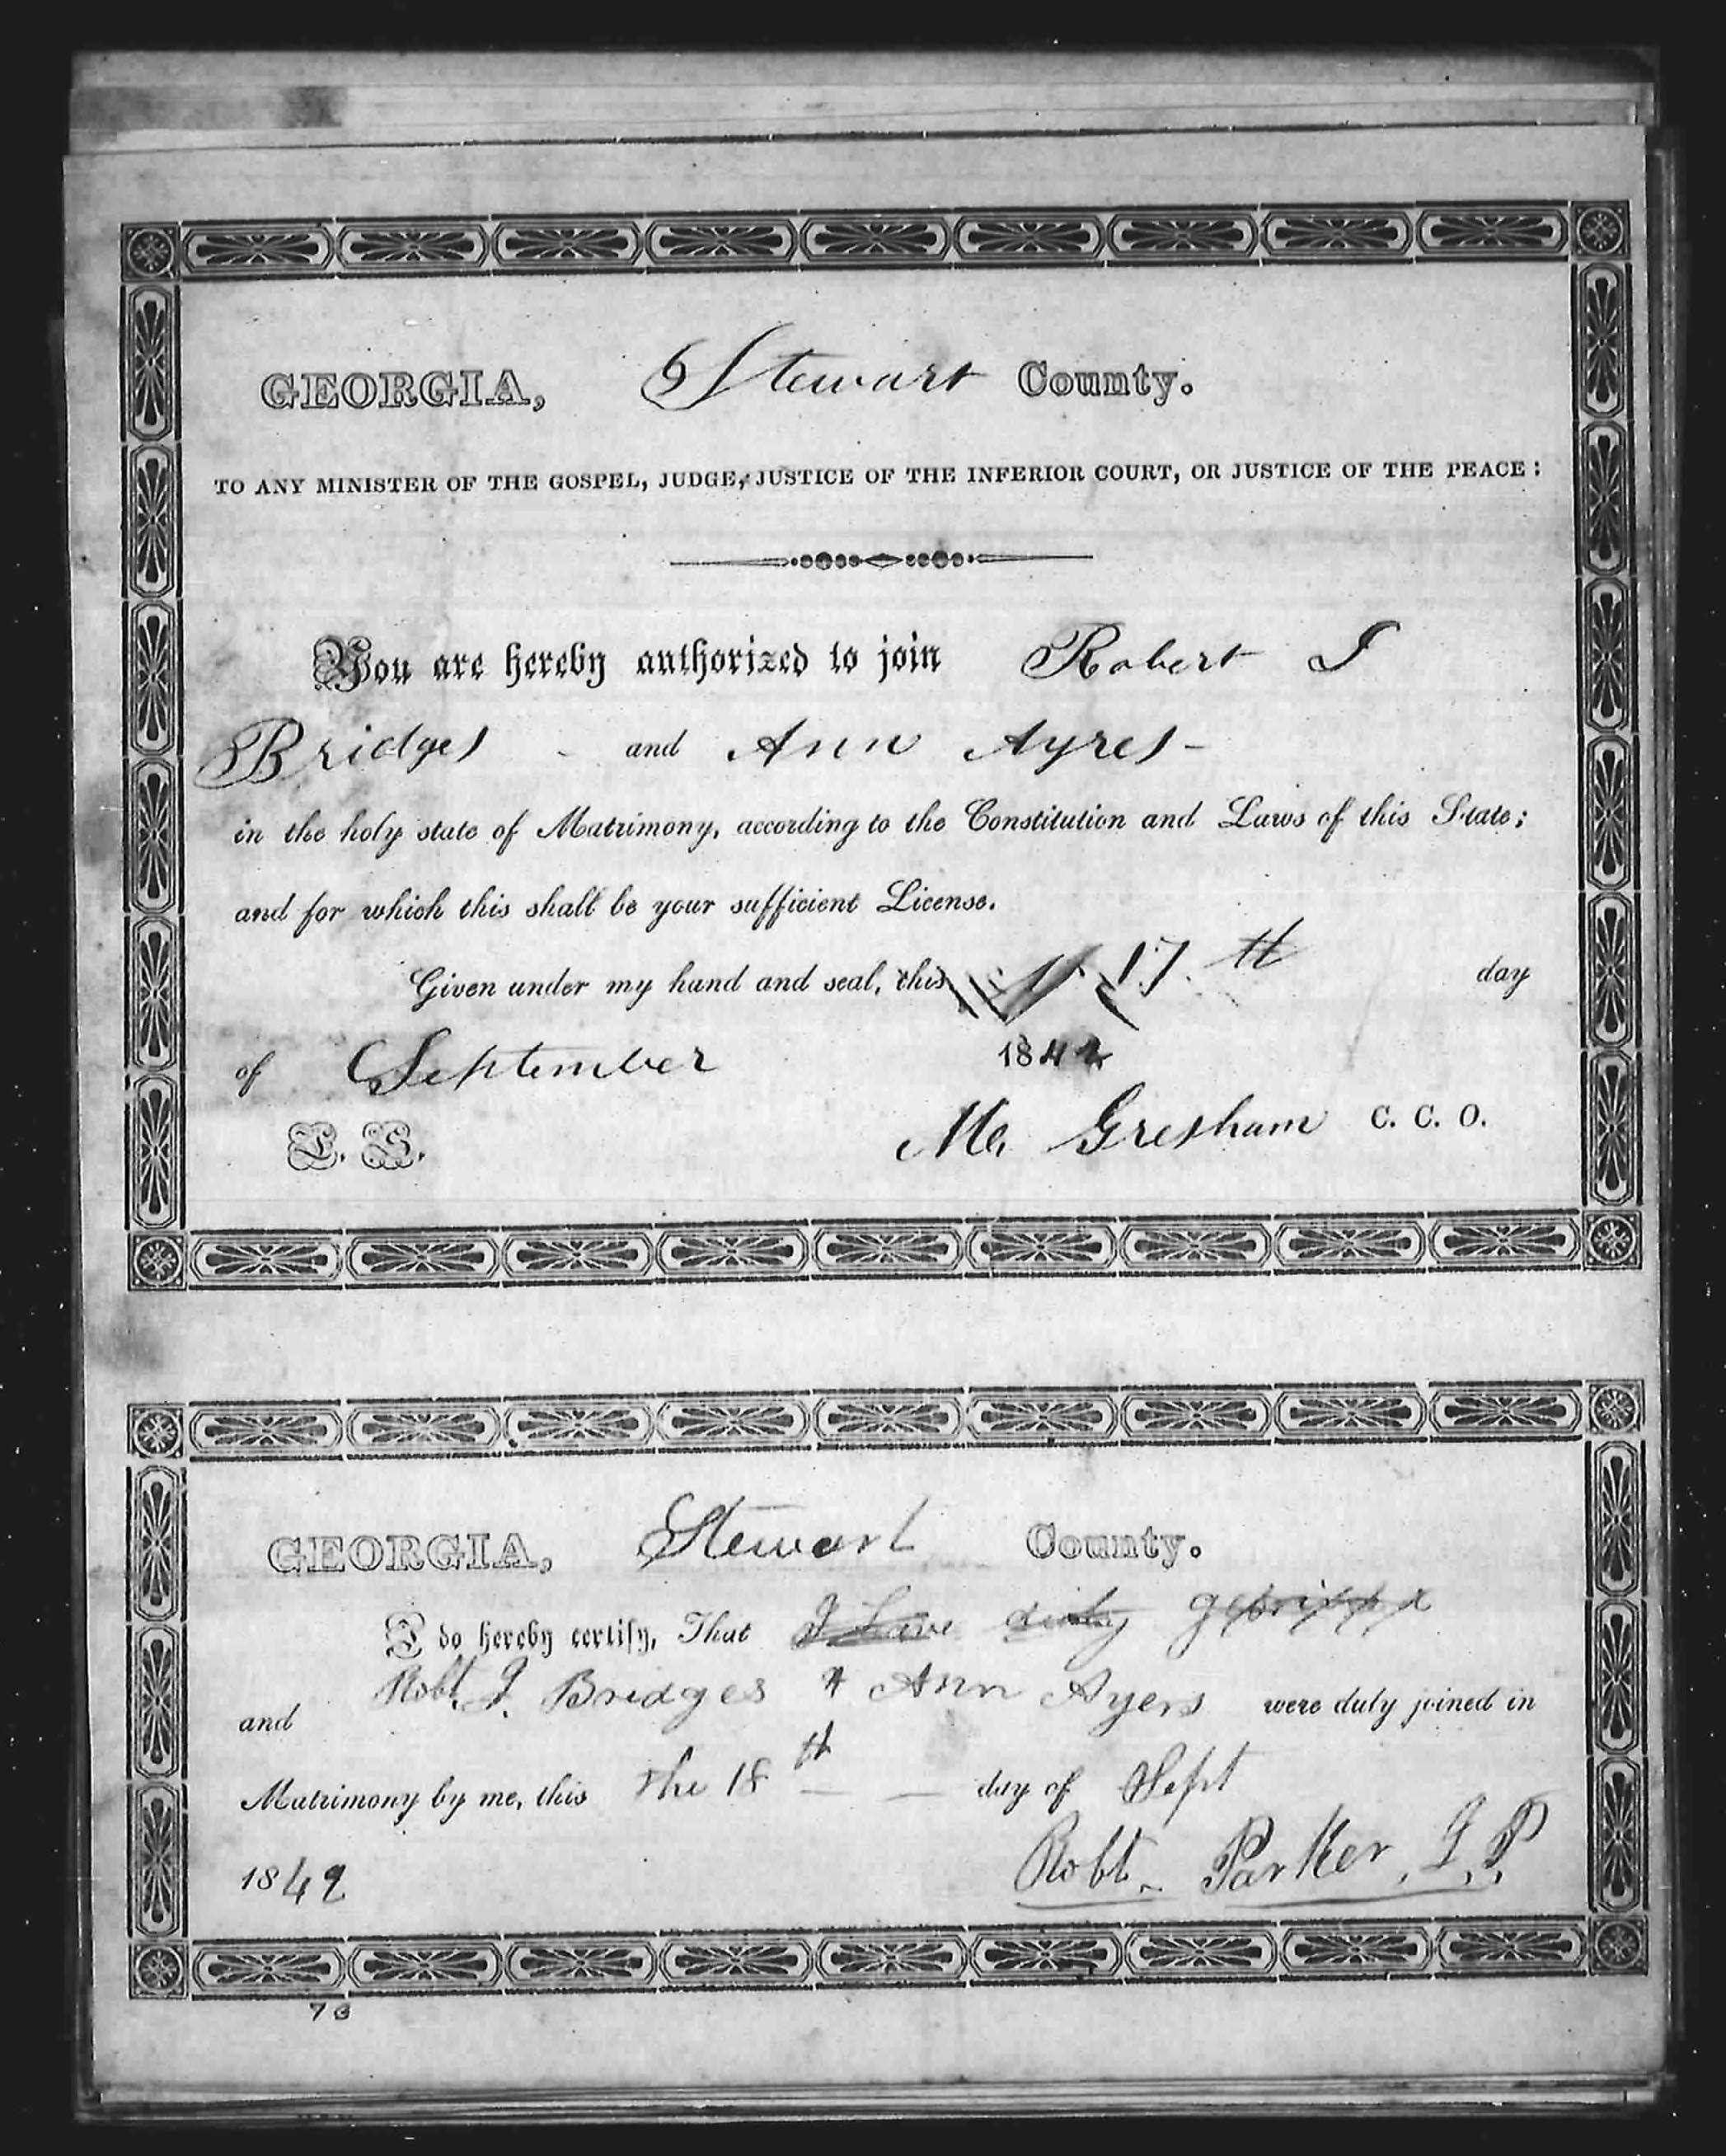 GEORGIA, Stewart County.
TO ANY MINISTER OF THE GOSPEL, JUDGE, JUSTICE OF THE INFERIOR COURT, OR JUSTICE OF THE PEACE:
You are hereby authorized to join Robert J
Bridges - and Ann Ayres -
in the holy state of Matrimony, according to the Constitution and Laws of this State;
and for which this shall be your sufficient License.
Given under my hand and seal, this 17th day
of September 1842
L. S. Gresham C. C. O.
GEORGIA, Stewart County.
I do hereby certify, That I have duly
Robt. J. Bridges & Ann Ayers
and were duly joined in
Matrimony by me, this the 18th — — day of Sept
1842 Robt. Parker, J. P.
73